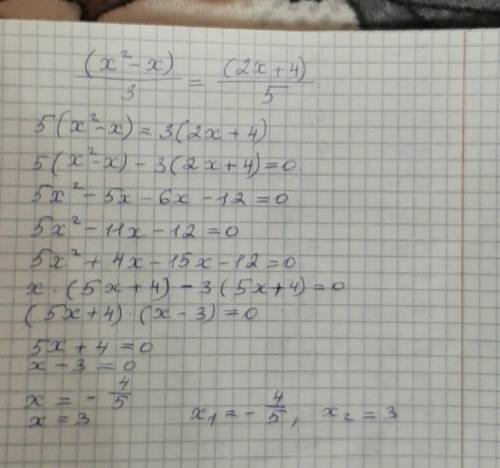 (x² - x)/3 = (2x + 4)/5
5(x² - x) = 3(2x + 4)
5(x² - x) - 3(2x + 4) = 0
5x² - 5x - 6x - 12 = 0
5x² - 11x - 12 = 0
5x² + 4x - 15x - 12 = 0
x · (5x + 4) - 3(5x + 4) = 0
(5x + 4) · (x - 3) = 0
5x + 4 = 0
x - 3 = 0
x = - 4/5
x = 3 x₁ = - 4/5, x₂ = 3